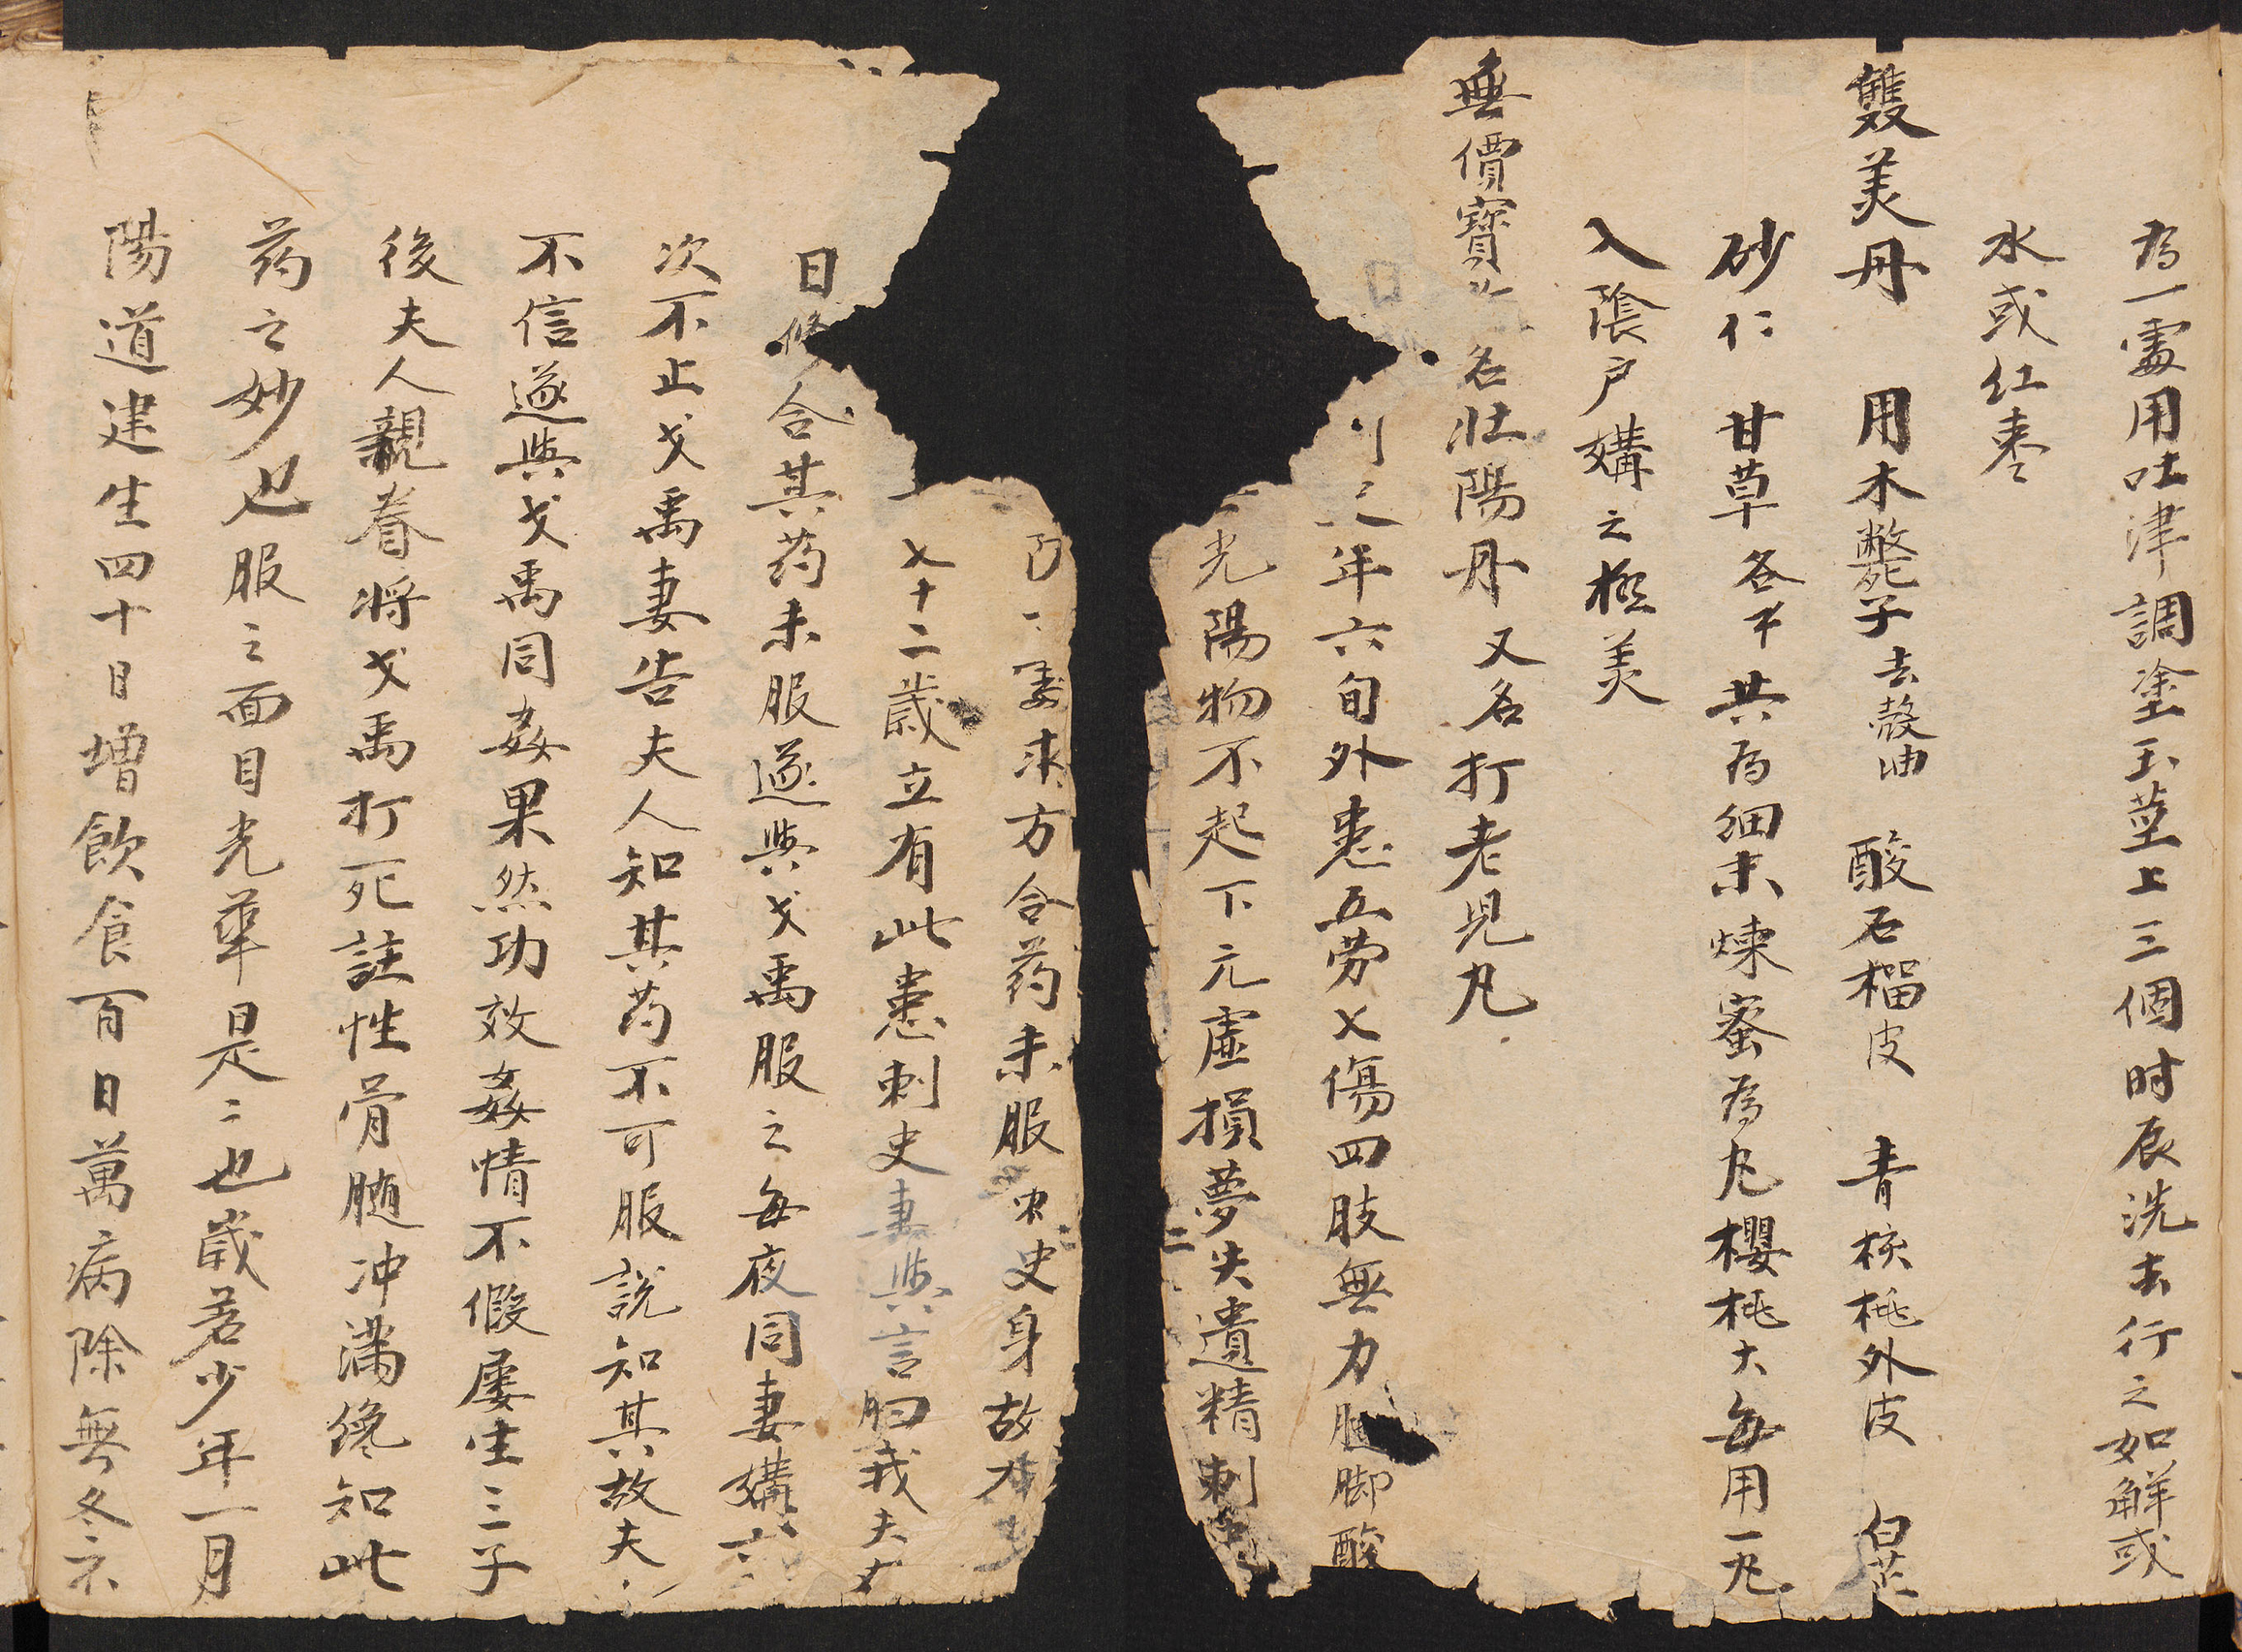 為一處用吐津調塗玉莖上三個时辰洗去行之如解或
水或红枣
雙美丹 用木鼈子去殼油 酸石榴皮 青核桃外皮 白芷
砂仁 甘草各 共為细末煉蜜為丸櫻桃大每用一丸
入陰户媾之極美
無價寶 名壯陽丹又名打老児丸
年六旬外患五劳乂傷四肢無力腿脚酸
光陽物不起下元虛損夢失遺精刺
求方合药未服 史身故
乂十二歲立有此患刺史妻與言曰我夫
日修合其药未服遂與戈禹服之每夜同妻媾六
次不止戈禹妻告夫人知其药不可服說知其故夫
不信遂與戈禹同姦果然功效姦情不假屡生三子
後夫人親眷将戈禹打死註性骨随冲满儳知此
药之妙也服之面目光華是二也歲若少年一月
陽道建生四十日增飲食百日萬病除無冬不